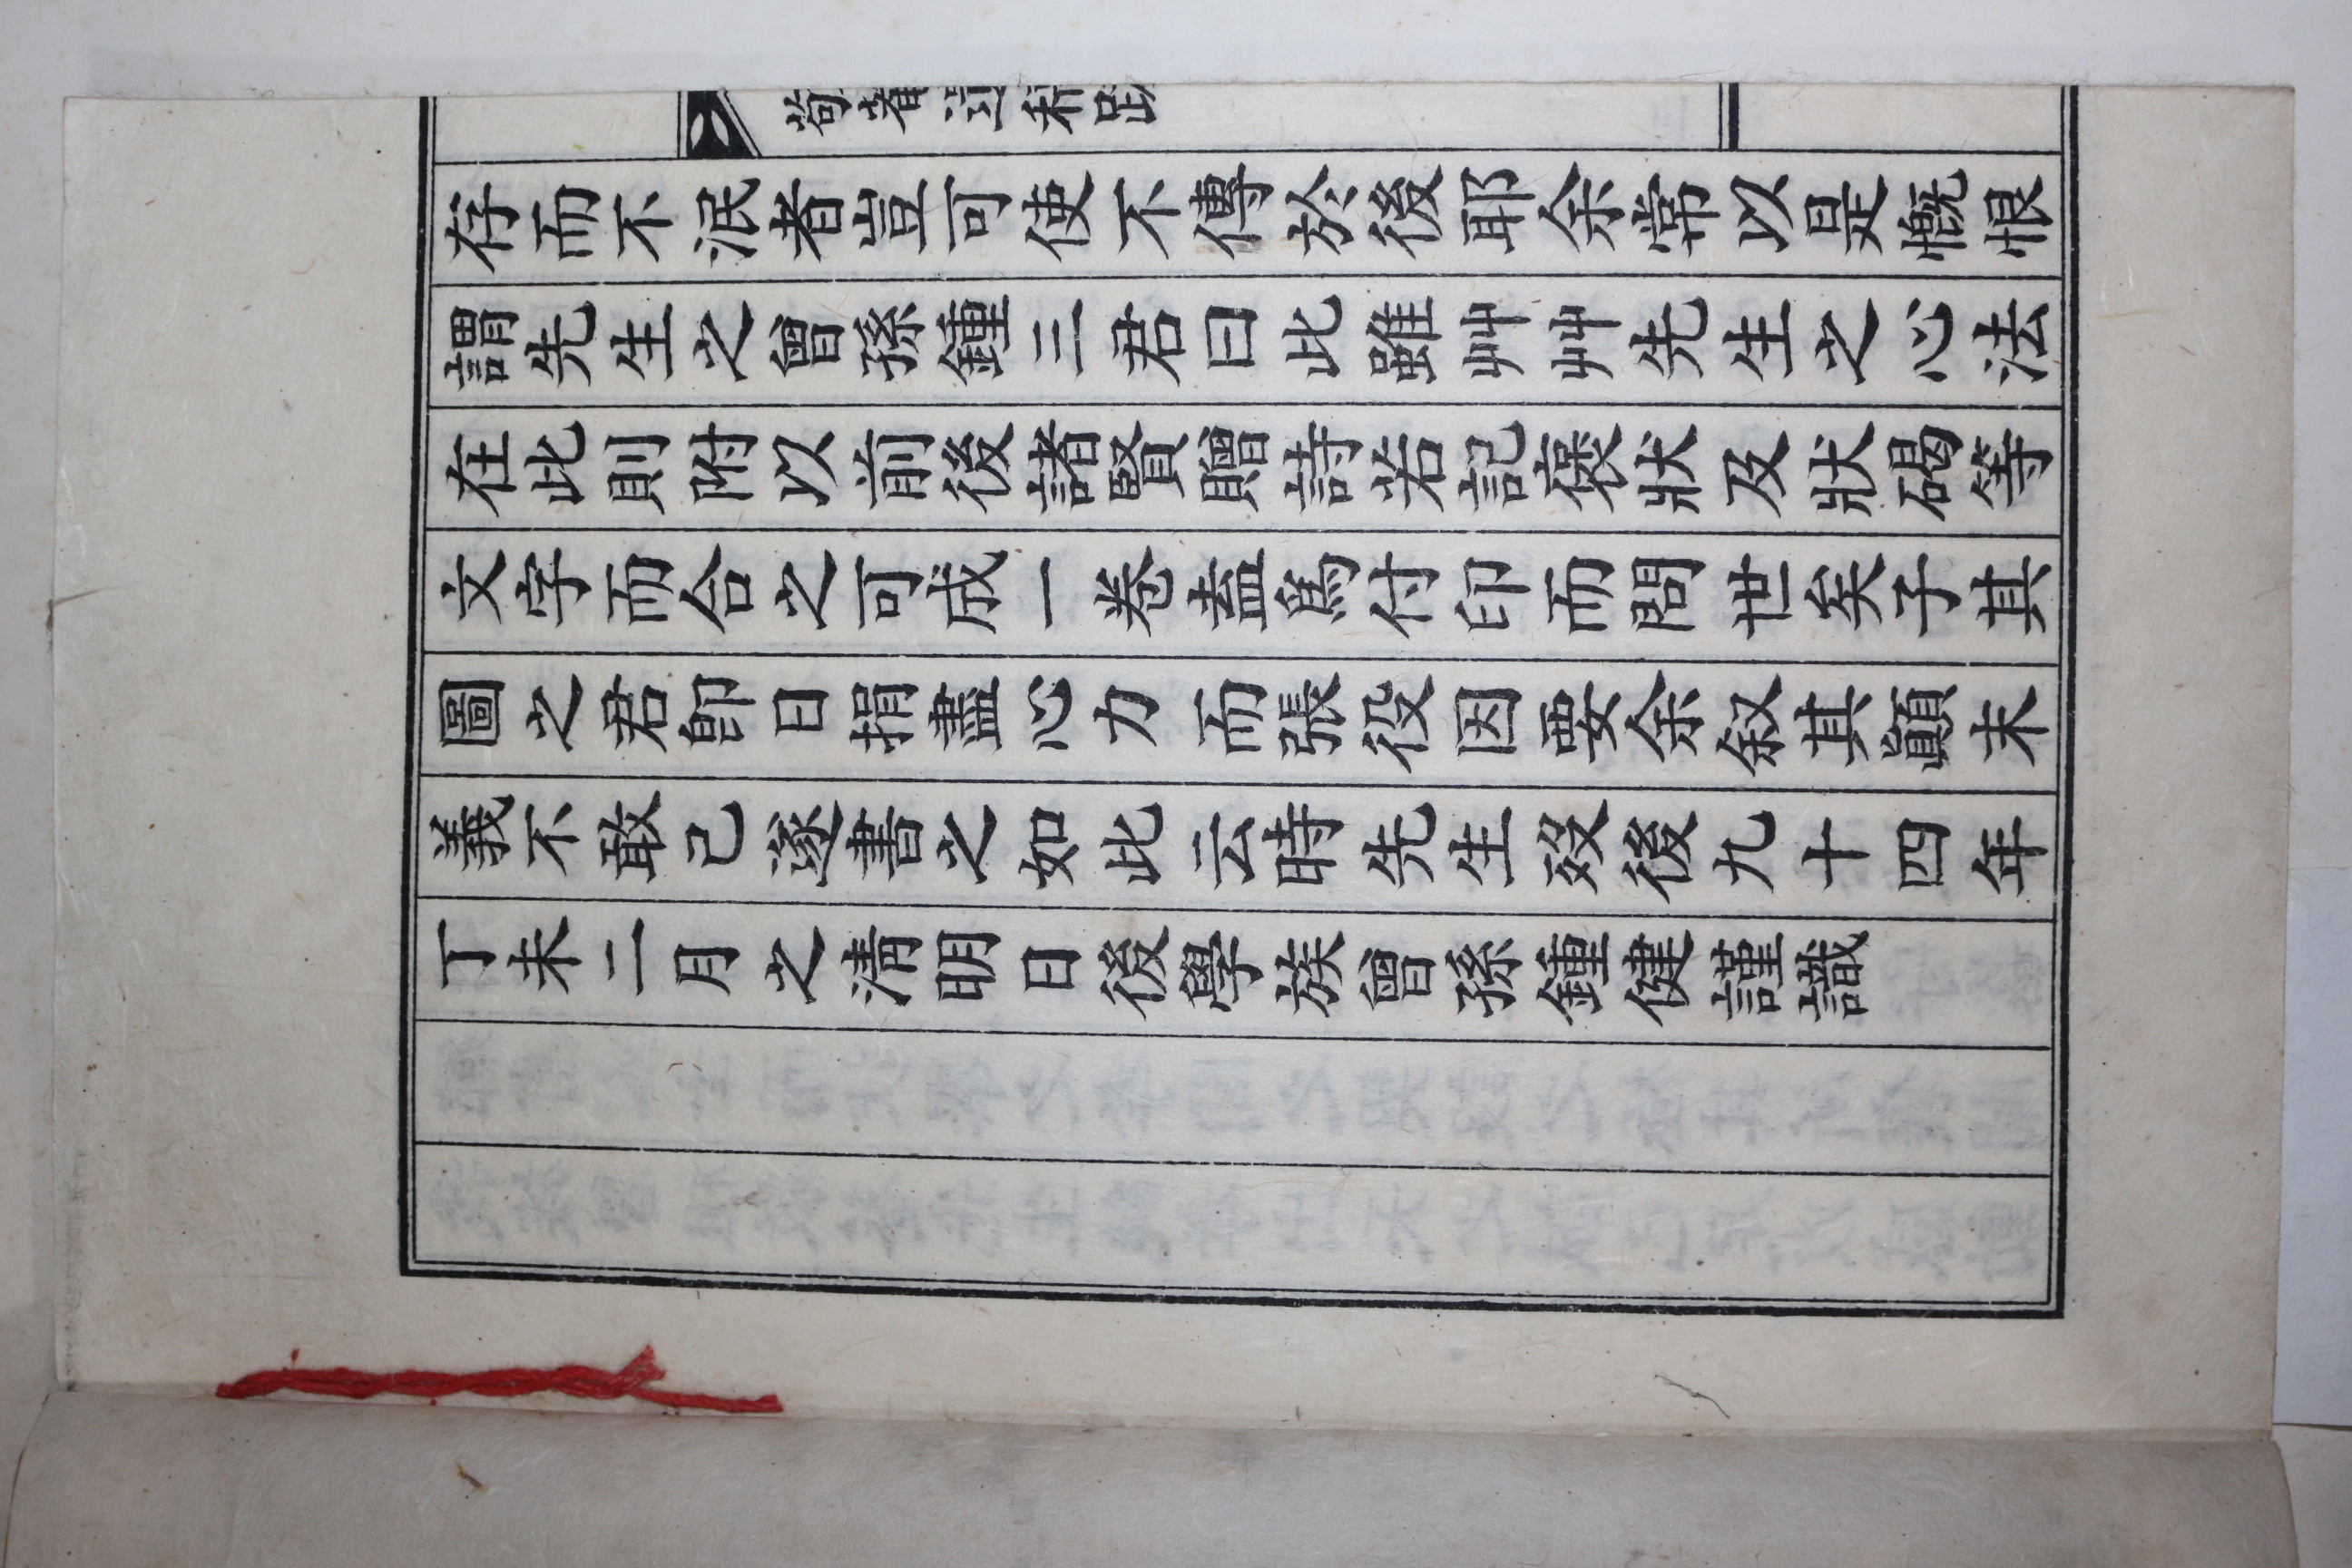 存而不泯者豈可使不傳於後耶余常以是慨恨
謂先生之曾孫鍾三君曰此雖艸艸先生之心法
在此則附以前後諸賢贈詩若記褒狀及狀碣等
文字而合之可成一卷盍爲付印而問世矣子其
圖之君卽日捐盡心力而張役因要余叙其顚末
義不敢己遂書之如此云時先生歿後九十四年
丁未二月之淸明日後學族曾孫鍾健謹識